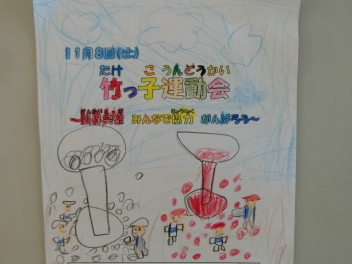 11月8日(土)
たけ こ うんどうかい
竹っ子運動会
みんなで協力 がんばろう～